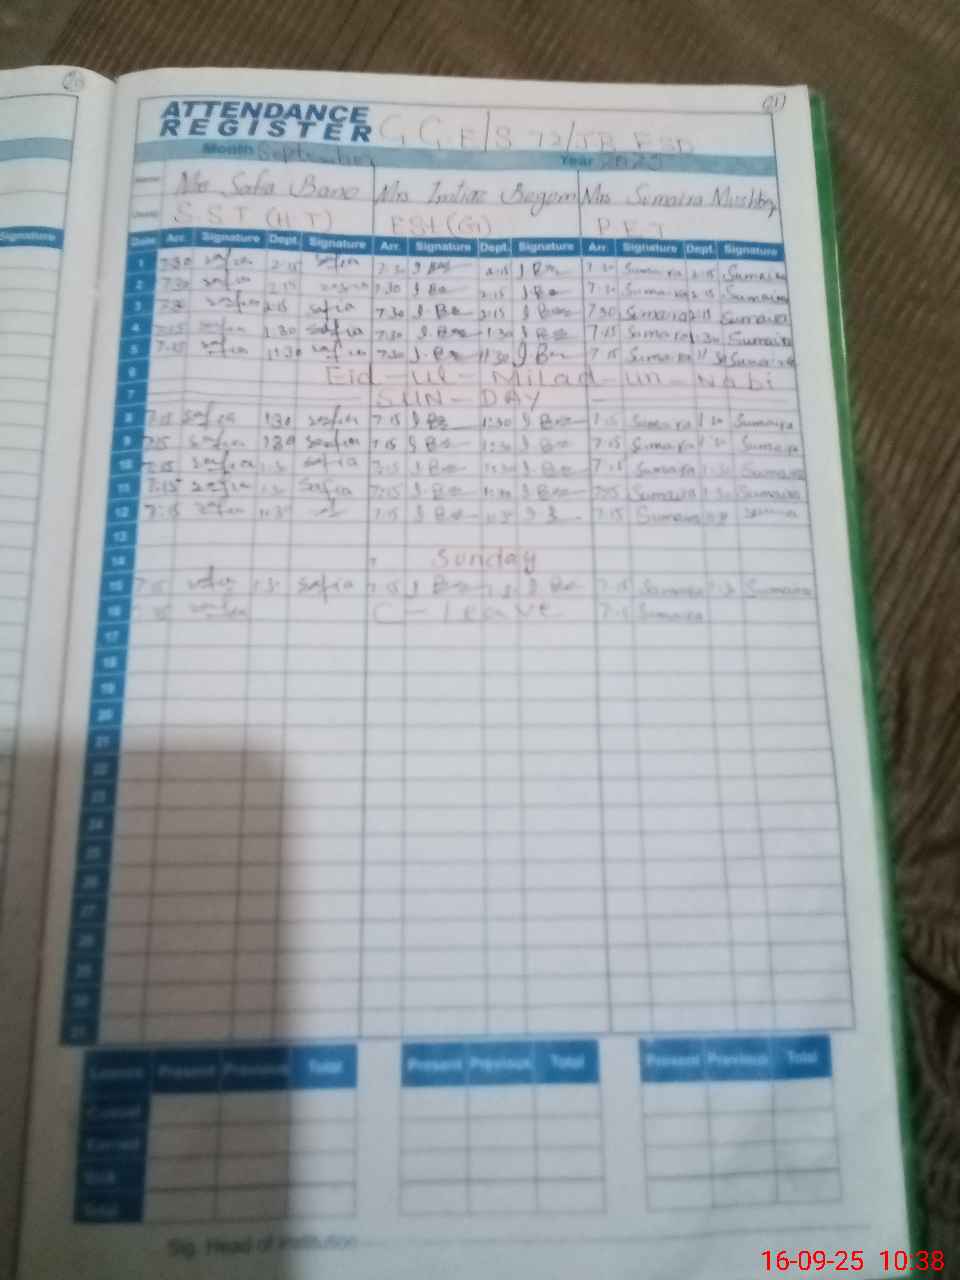 20
21
ATTENDANCE
REGISTER G.G.E/S 72/JB FSD
Month September Year 2025
Mrs Safia Bano Mrs Imtiaz Begum Mrs Sumaira Mushtaq
S.S.T (H.T) EST (G) P.E.T
Signature
Date Arr. Signature Dept. Signature Arr. Signature Dept. Signature Arr. Signature Dept. Signature
1 7:30 safia 2:15 safia 7:30 2:15 7:30 Sumaira 2:15 Sumaira
2 7:30 safia 2:15 safia 7:30 2:15 7:30 Sumaira 2:15 Sumaira
3 7:30 safia 2:15 safia 7:30 2:15 7:30 Sumaira 2:15 Sumaira
4 7:15 safia 1:30 safia 7:30 1:30 7:15 Sumaira 1:30 Sumaira
5 7:15 safia 11:30 safia 7:30 11:30 7:15 Sumaira 11:30 Sumaira
6 Eid-ul-Milad-un-Nabi
7 SUN-DAY
8 7:15 safia 1:30 safia 7:15 1:30 7:15 Sumaira 1:30 Sumaira
9 7:15 safia 1:30 safia 7:15 1:30 7:15 Sumaira 1:30 Sumaira
10 7:15 safia 1:30 safia 7:15 1:30 7:15 Sumaira 1:30 Sumaira
11 7:15 safia 1:30 safia 7:15 1:30 7:15 Sumaira 1:30 Sumaira
12 7:15 safia 11:30 7:15 11:30 7:15 Sumaira
13
14 Sunday
15 7:15 safia 1:30 safia 7:15 1:30 7:15 Sumaira 1:30 Sumaira
16 7:15 safia C-Leave 7:15 Sumaira
17
18
19
20
21
22
23
24
25
26
27
28
29
30
31
Leaves Present Previous Total Present Previous Total Present Previous Total
Casual
Earned
Sick
Total
Sig. Head of Institution
16-09-25 10:38